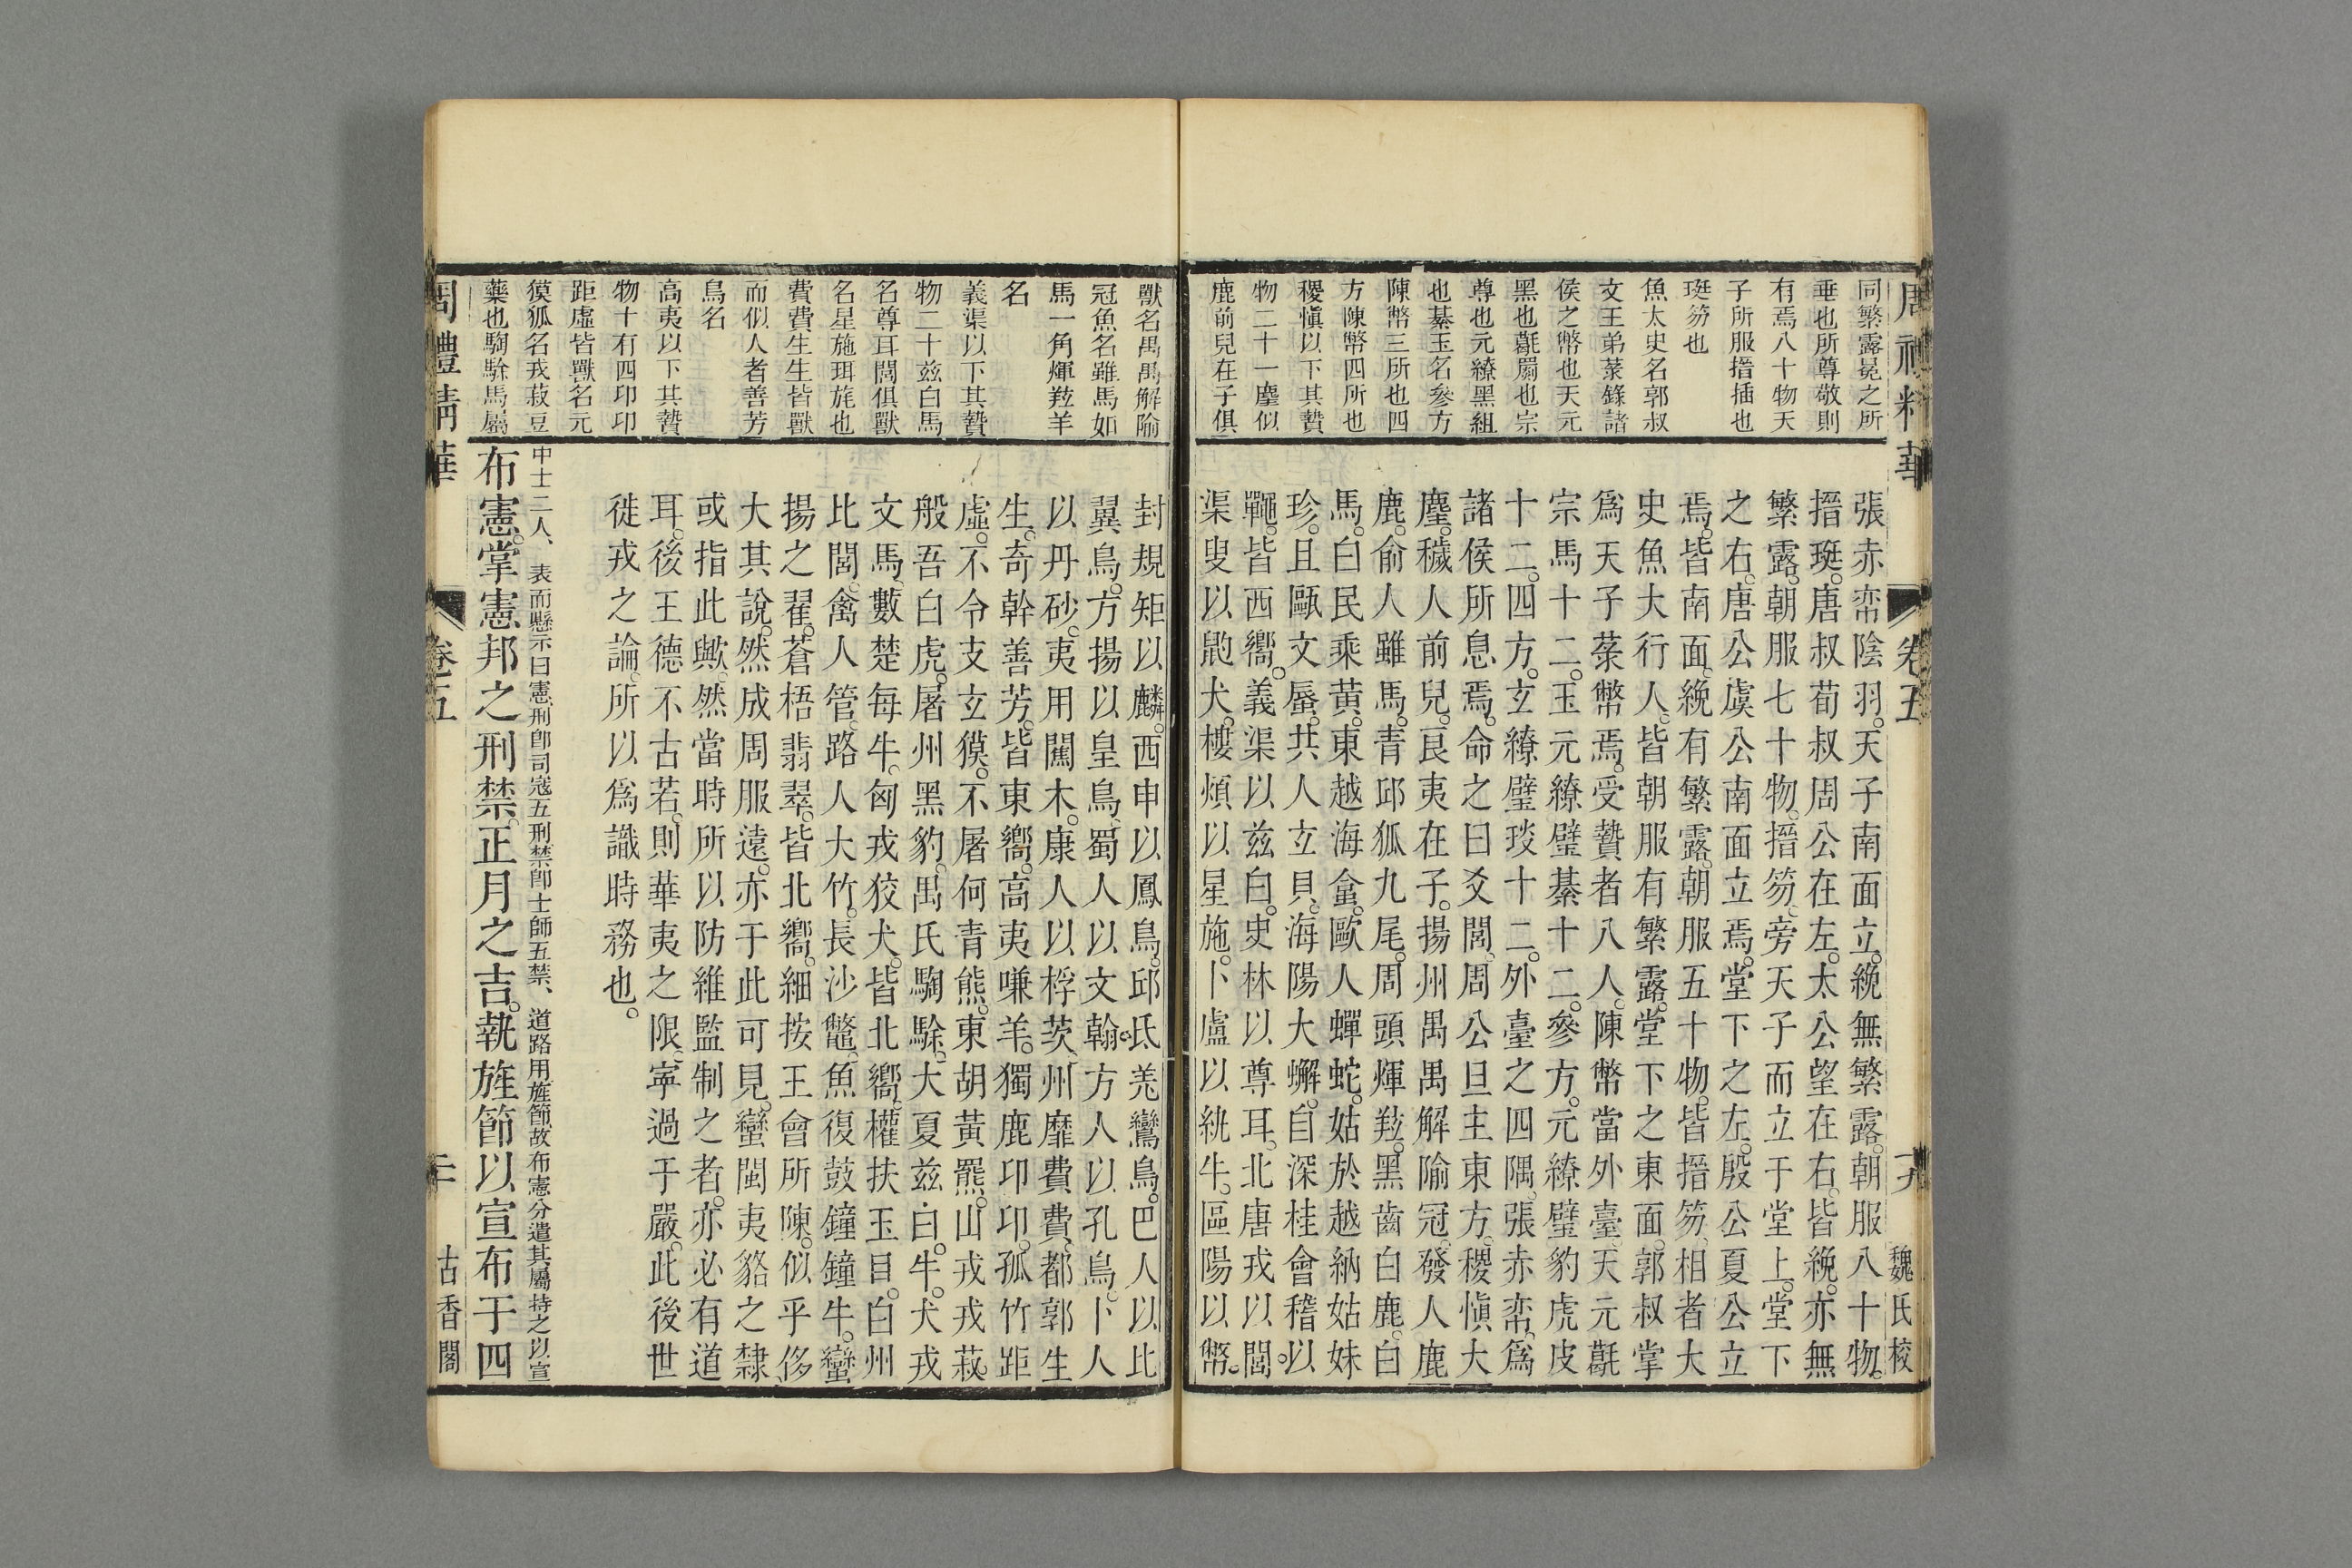 周禮精華
卷五
十九
魏氏校
同繁露冕之所
垂也所尊敬則
有焉八十物天
子所服搢插也
珽笏也
魚太史名郭叔
文王弟菉錄諸
侯之幣也天元
黑也氍罽也宗
尊也元繚黑組
也綦玉名參方
陳幣三所也四
方陳幣四所也
稷愼以下其贄
物二十一麈似
鹿前兒在子俱
張赤帟陰羽。天子南面立。絻無繁露。朝服八十物。
搢珽。唐叔荀叔周公在左。太公望在右。皆絻。亦無
繁露。朝服七十物。搢笏。旁天子而立于堂上。堂下
之右。唐公虞公南面立焉。堂下之左。殷公夏公立
焉。皆南面。絻有繁露。朝服五十物。皆搢笏。相者大
史魚大行人。皆朝服有繁露。堂下之東面。郭叔掌
爲天子菉幣焉。受贄者八人。陳幣當外臺。天元氍
宗馬十二。玉元繚璧綦十二。參方。元繚璧豹虎皮
十二。四方。玄繚璧琰十二。外臺之四隅。張赤帟。爲
諸侯所息焉。命之曰爻閭。周公旦主東方。稷愼大
麈。穢人前兒。良夷在子。揚州禺禺解隃冠。發人鹿
鹿。俞人雖馬。青邱狐九尾。周頭煇羖。黑齒白鹿。白
馬。白民乘黃。東越海蛤。歐人蟬蛇。姑於越納姑妹
珍。且甌文蜃。共人玄貝。海陽大蠏。自深桂會稽以
鼆。皆西嚮。義渠以兹白。史林以尊耳。北唐戎以閭。
渠叟以鼩犬。樓煩以星施。卜盧以紈牛。區陽以幣。
獸名禺禺解隃
冠魚名雖馬如
馬一角煇羖羊
名
義渠以下其贄
物二十兹白馬
名尊耳閭俱獸
名星施珥旄也
費費生生皆獸
而似人者善芳
鳥名
高夷以下其贄
物十有四卬卬
距虛皆獸名元
獏狐名戎菽豆
藥也騊駼馬屬
封規矩以麟。西申以鳳鳥。邱氐羌鸞鳥。巴人以比
翼鳥。方揚以皇鳥。蜀人以文翰。方人以孔鳥。卜人
以丹砂。夷用闠木。康人以桴茨。州靡費費。都郭生
生。奇幹善芳。皆東嚮。高夷嗛羊。獨鹿卬卬。孤竹距
虛。不令支玄獏。不屠何青熊。東胡黃羆。山戎戎菽。
般吾白虎。屠州黑豹。禺氏騊駼。大夏兹白。牛。犬戎
文馬。數楚每牛。匈戎狡犬。皆北嚮。權扶玉目。白州
比閭。禽人管。路人大竹。長沙鼈。魚復鼓鐘鐘牛。蠻
揚之翟。蒼梧翡翠。皆北嚮。細按王會所陳。似乎侈
大其說。然成周服遠。亦于此可見。蠻閩夷貉之隸、
或指此歟。然當時所以防維監制之者。亦必有道
耳。後王德不古若。則華夷之限。寧過于嚴。此後世
徙戎之論。所以爲識時務也。
中士二人、表而懸示曰憲刑卽司寇五刑禁卽士師五禁、道路用旌節故布憲分遣其屬持之以宣
布憲。掌憲邦之刑禁。正月之吉。執旌節以宣布于四
周禮精華
卷五
二十
古香閣